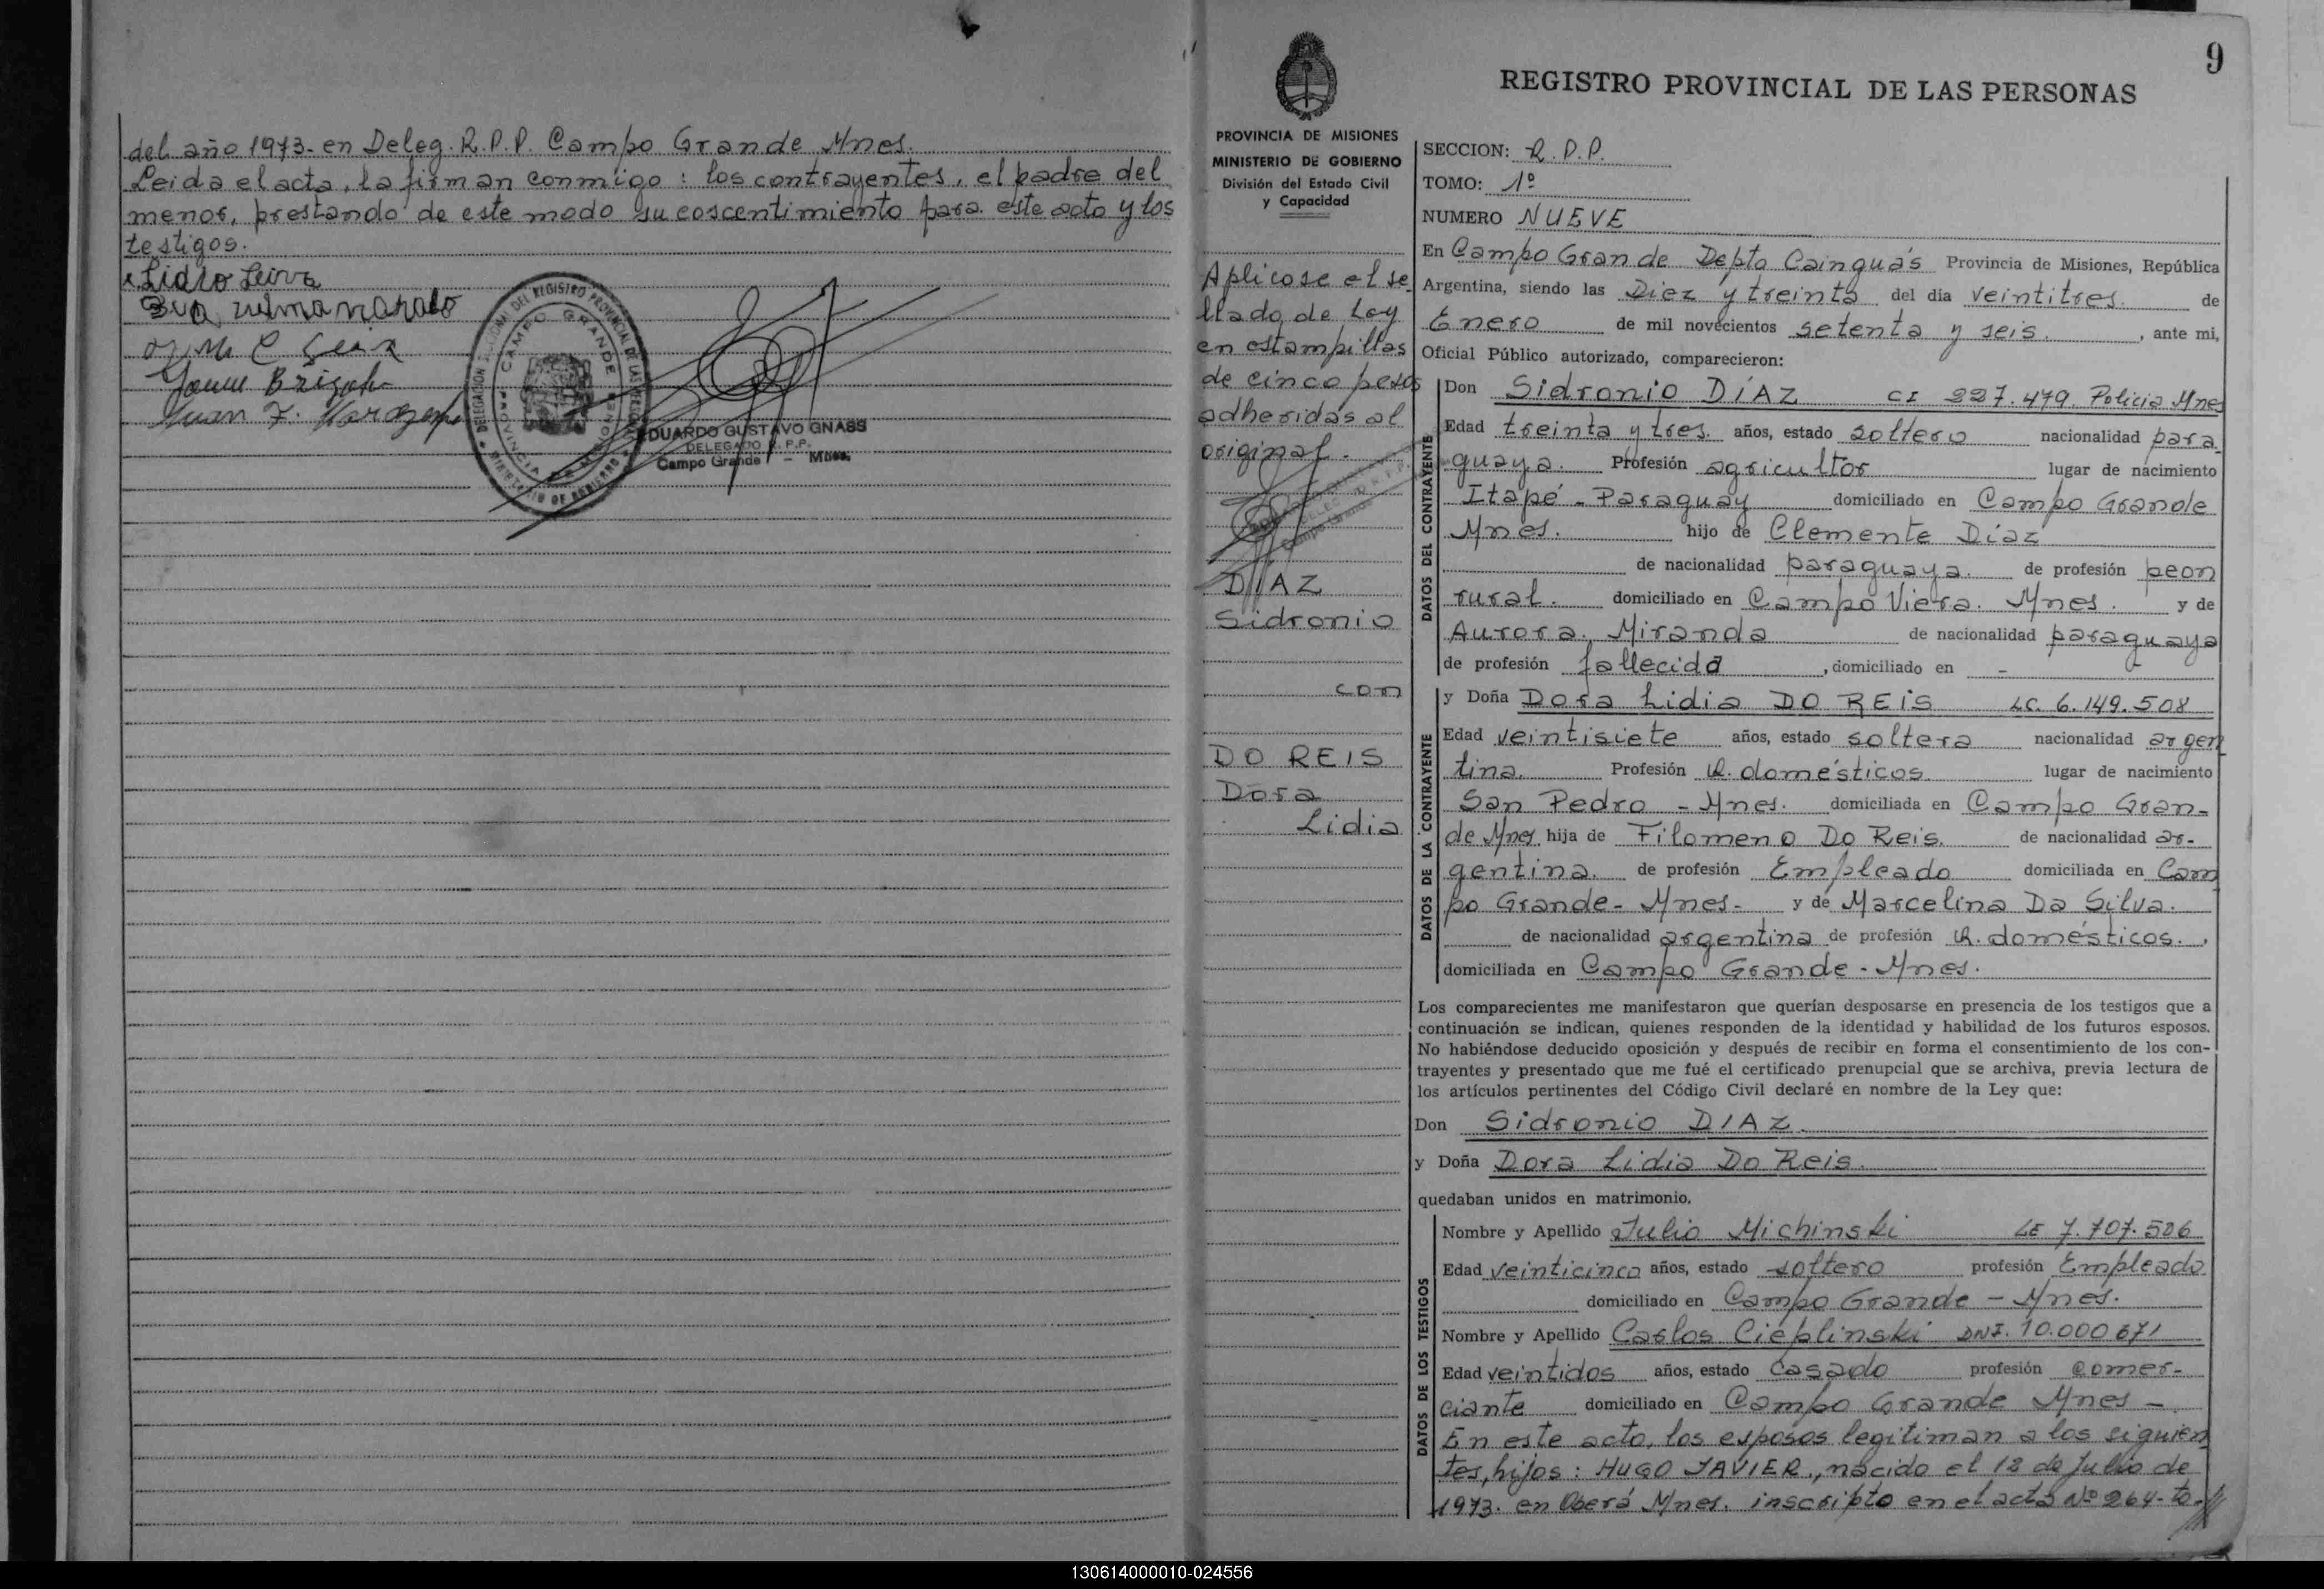 del año 1973- en Deleg. R.P.P. Campo Grande Mnes.
Leida el acta, la firman conmigo: los contrayentes, el padre del
menor, prestando de este modo su coscentimiento para este acto y los
testigos.
DELEGACION
DEL REGISTRO PROVINCIAL DE LAS PERSONAS
CAMPO GRANDE
PROVINCIA DE MISIONES
MINISTERIO DE GOBIERNO
EDUARDO GUSTAVO GNASS
DELEGADO R.P.P.
Campo Grande - Mnes.
9
REGISTRO PROVINCIAL DE LAS PERSONAS
PROVINCIA DE MISIONES
MINISTERIO DE GOBIERNO
División del Estado Civil
y Capacidad
Aplicose el se-
llado de Ley
en estampillas
de cinco pesos
adheridas al
original.
DÍAZ
Sidronio
con
DO REIS
Dora
Lidia
SECCION: R.P.P.
TOMO: 1º
NUMERO NUEVE
En Campo Grande Depto Cainguás Provincia de Misiones, República
Argentina, siendo las Diez y treinta del día veintitres de
Enero de mil novecientos setenta y seis. , ante mi,
Oficial Público autorizado, comparecieron:
DATOS DEL CONTRAYENTE
Don Sidronio DÍAZ CI 227.479 Policia Mnes
Edad treinta y tres. años, estado soltero nacionalidad para-
guaya. Profesión agricultor lugar de nacimiento
Itapé - Paraguay domiciliado en Campo Grande
Mnes. hijo de Clemente Díaz
de nacionalidad paraguaya. de profesión peon
rural. domiciliado en Campo Viera. Mnes. y de
Aurora Miranda de nacionalidad paraguaya
de profesión fallecida , domiciliado en -
DATOS DE LA CONTRAYENTE
y Doña Dora Lidia DO REIS LC. 6.149.508
Edad veintisiete años, estado soltera nacionalidad argen
tina. Profesión Q. domésticos lugar de nacimiento
San Pedro - Mnes. domiciliada en Campo Gran-
de Mnes. hija de Filomeno Do Reis. de nacionalidad ar-
gentina. de profesión Empleado domiciliada en Cam
po Grande- Mnes- y de Marcelina Da Silva.
de nacionalidad argentina de profesión Q. domésticos. ,
domiciliada en Campo Grande - Mnes.
Los comparecientes me manifestaron que querían desposarse en presencia de los testigos que a
continuación se indican, quienes responden de la identidad y habilidad de los futuros esposos.
No habiéndose deducido oposición y después de recibir en forma el consentimiento de los con-
trayentes y presentado que me fué el certificado prenupcial que se archiva, previa lectura de
los artículos pertinentes del Código Civil declaré en nombre de la Ley que:
Don Sidronio DIAZ.
y Doña Dora Lidia Do Reis.
quedaban unidos en matrimonio.
DATOS DE LOS TESTIGOS
Nombre y Apellido Julio Michinski LE 7.707.506
Edad veinticinco años, estado soltero profesión Empleado
domiciliado en Campo Grande - Mnes.
Nombre y Apellido Carlos Cieplinski DNI. 10.000671
Edad veintidos años, estado Casado profesión comer-
ciante domiciliado en Campo Grande Mnes -
En este acto, los esposos legitiman a los siguien
tes, hijos: HUGO JAVIER, nacido el 12 de Julio de
1973. en Oberá Mnes. inscripto en el acta Nº 264- to-
130614000010-024556